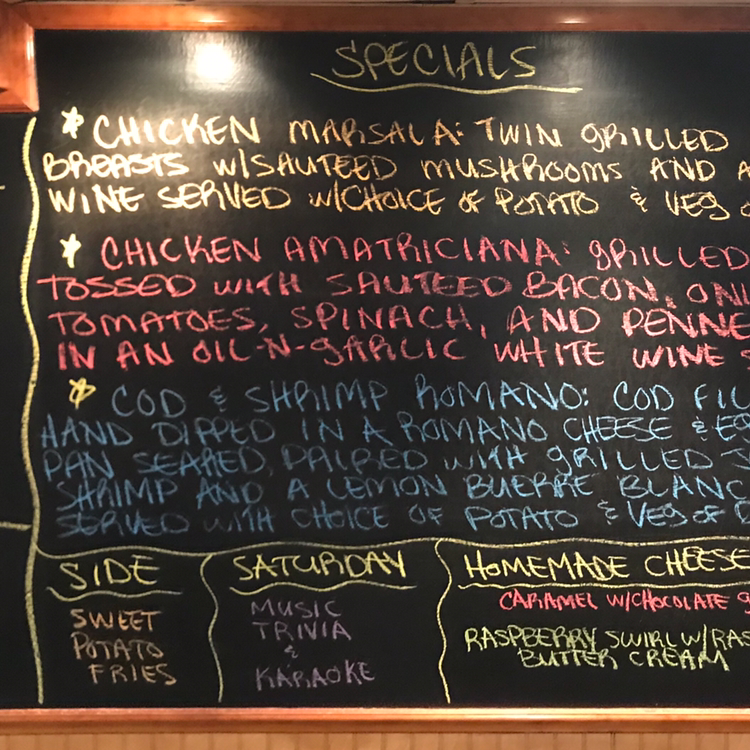 SPECIALS
* CHICKEN MARSALA: TWIN GRILLED
BREASTS W/SAUTEED MUSHROOMS AND A
WINE SERVED W/CHOICE OF POTATO & VEG
* CHICKEN AMATRICIANA: GRILLED
TOSSED WITH SAUTEED BACON, ONI
TOMATOES, SPINACH, AND PENNE
IN AN OIL-N-GARLIC WHITE WINE
* COD & SHRIMP ROMANO: COD FIL
HAND DIPPED IN A ROMANO CHEESE & EG
PAN SEARED, PAIRED WITH GRILLED
SHRIMP AND A LEMON BUERRE BLANC
SERVED WITH CHOICE OF POTATO & VEG OF
SIDE
SWEET
POTATO
FRIES
SATURDAY
MUSIC
TRIVIA
&
KARAOKE
HOMEMADE CHEESE
CARAMEL W/CHOCOLATE
RASPBERRY SWIRL W/RAS
BUTTER CREAM